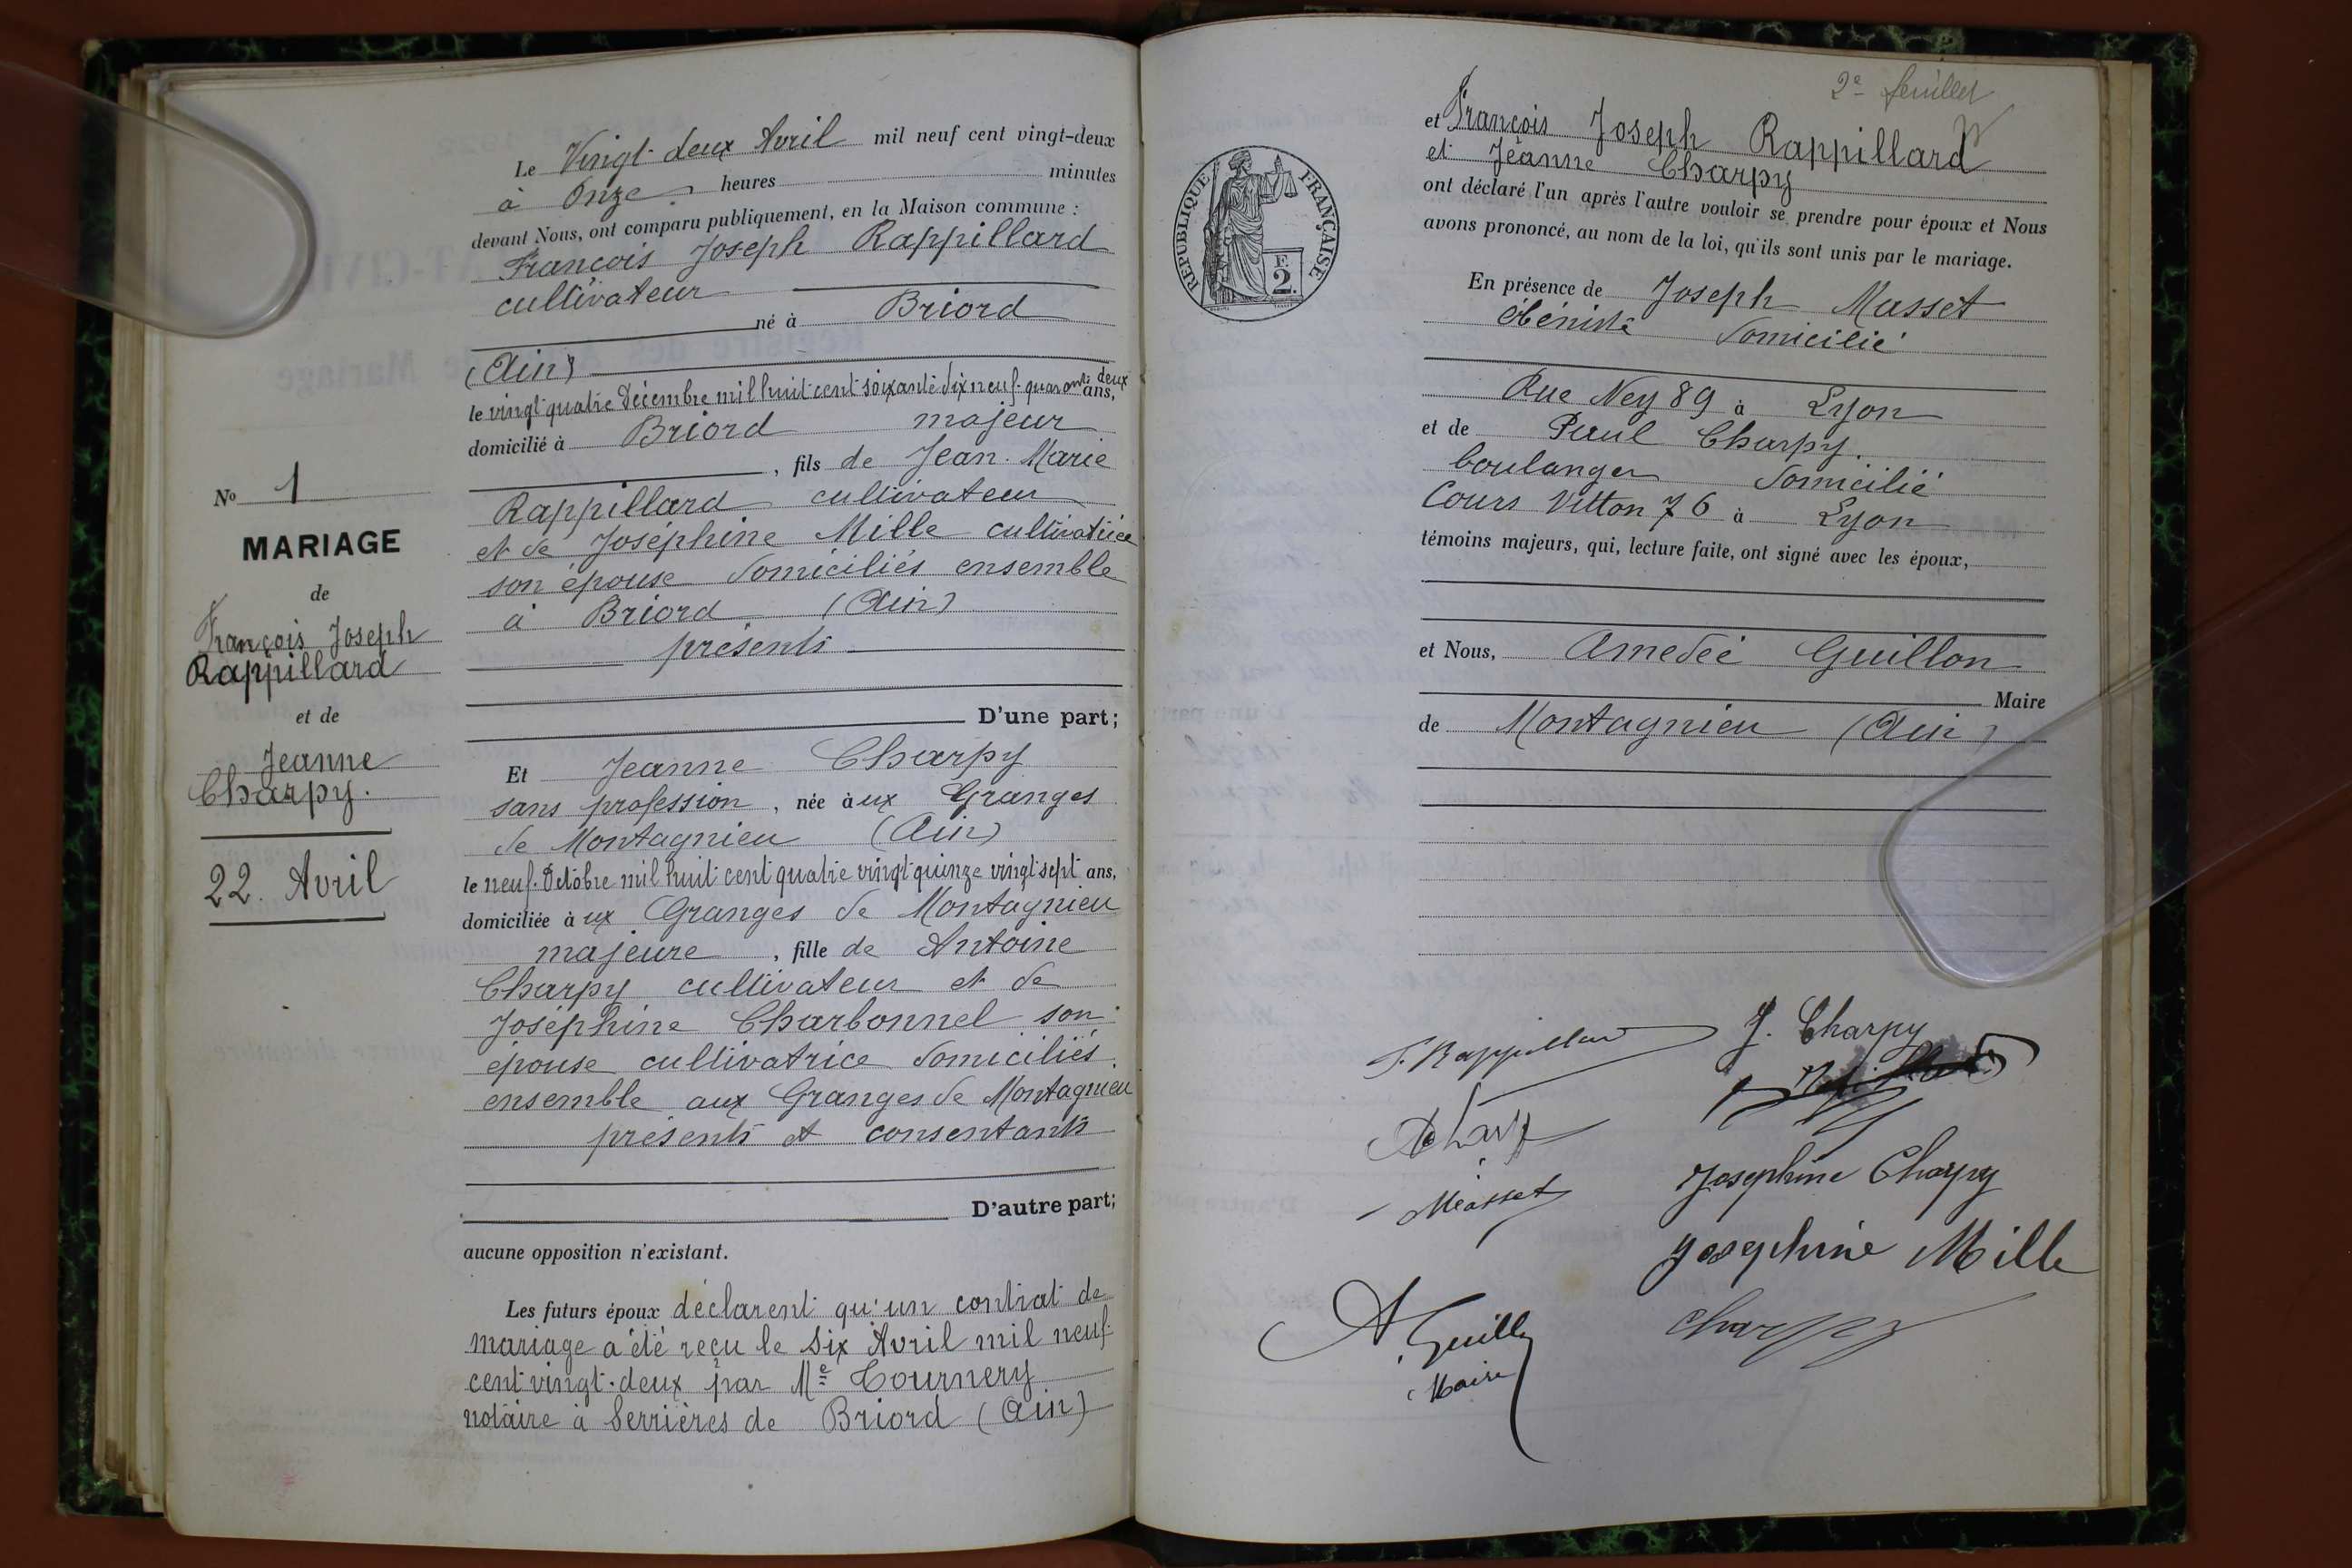 Le Vingt-deux Avril mil neuf cent vingt-deux
à Onze heures minutes
devant Nous, ont comparu publiquement, en la Maison commune :
François Joseph Rappillard
cultivateur
né à Briord
(Ain)
le vingt quatre Décembre mil huit cent soixante dix neuf. quarante deux ans,
domicilié à Briord majeur
, fils de Jean-Marie
Rappillard cultivateur
et de Joséphine Mille cultivatrice
son épouse domiciliés ensemble
à Briord (Ain)
présents
D'une part;
Et Jeanne Charpy
sans profession, née aux Granges
de Montagnieu (Ain)
le neuf. Octobre mil huit cent quatre vingt quinze vingt sept ans,
domiciliée aux Granges de Montagnieu
majeure, fille de Antoine
Charpy cultivateur et de
Joséphine Charbonnel son
épouse cultivatrice domiciliés
ensemble aux Granges de Montagnieu
présents et consentants
D'autre part;
aucune opposition n'existant.
Les futurs époux déclarent qu'un contrat de
mariage a été reçu le six Avril mil neuf
cent vingt-deux par Me Tournery
notaire à Serrières de Briord (Ain)
No 1
MARIAGE
de
François Joseph
Rappillard
et de
Jeanne
Charpy.
22. Avril
2e feuillet
et François Joseph Rappillard
et Jeanne Charpy
ont déclaré l'un après l'autre vouloir se prendre pour époux et Nous
avons prononcé, au nom de la loi, qu'ils sont unis par le mariage.
RÉPUBLIQUE FRANÇAISE
F.
2.
En présence de Joseph Masset
ébéniste domicilié
Rue Ney 89 à Lyon
et de Paul Charpy.
boulanger domicilié
Cours Vitton 76 à Lyon
témoins majeurs, qui, lecture faite, ont signé avec les époux,
et Nous, Amedée Guillon
Maire
de Montagnieu (Ain)
J. Charpy
Masset
Josephine Charpy
Josephine Mille
A. Guillon
Maire
Charpy